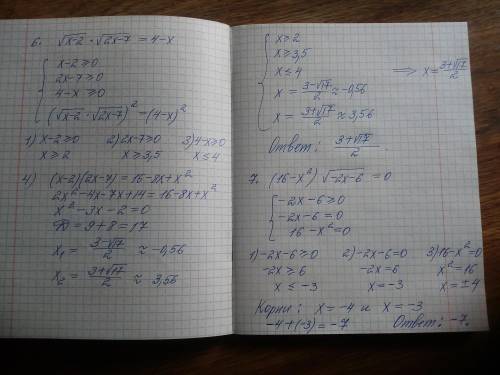 6. √x-2 · √2x-7 = 4-x
{ x-2 ≥ 0
2x-7 ≥ 0
4-x ≥ 0
(√x-2 · √2x-7)² = (4-x)²
1) x-2 ≥ 0 2) 2x-7 ≥ 0 3) 4-x ≥ 0
x ≥ 2 x ≥ 3,5 x ≤ 4
4) (x-2)(2x-7) = 16-8x+x²
2x²-4x-7x+14 = 16-8x+x²
x²-3x-2=0
D = 9+8 = 17
x₁ = (3-√17)/2 ≈ -0,56
x₂ = (3+√17)/2 ≈ 3,56
{ x ≥ 2
x ≥ 3,5
x ≤ 4 ⟹ x = (3+√17)/2
x = (3-√17)/2 ≈ -0,56
x = (3+√17)/2 ≈ 3,56
Ответ: (3+√17)/2.
7. (16-x²) √-2x-6 = 0
{ -2x-6 ≥ 0
-2x-6 = 0
16-x² = 0
1) -2x-6 ≥ 0 2) -2x-6=0 3) 16-x²=0
-2x ≥ 6 -2x=6 x²=16
x ≤ -3 x=-3 x=±4
Корни: x=-4 и x=-3
-4+(-3)=-7 Ответ: -7.